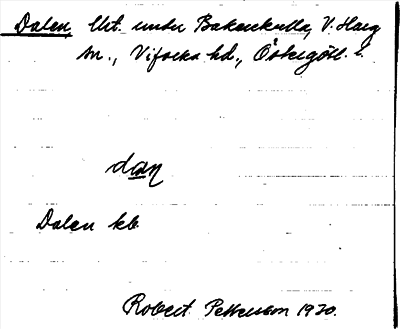 Dalen, Utt. under Bakarekulla, V. Harg
sn., Vifolka hd., Östergötl. l.
dan
Dalen kb
Robert Pettersson 1920.